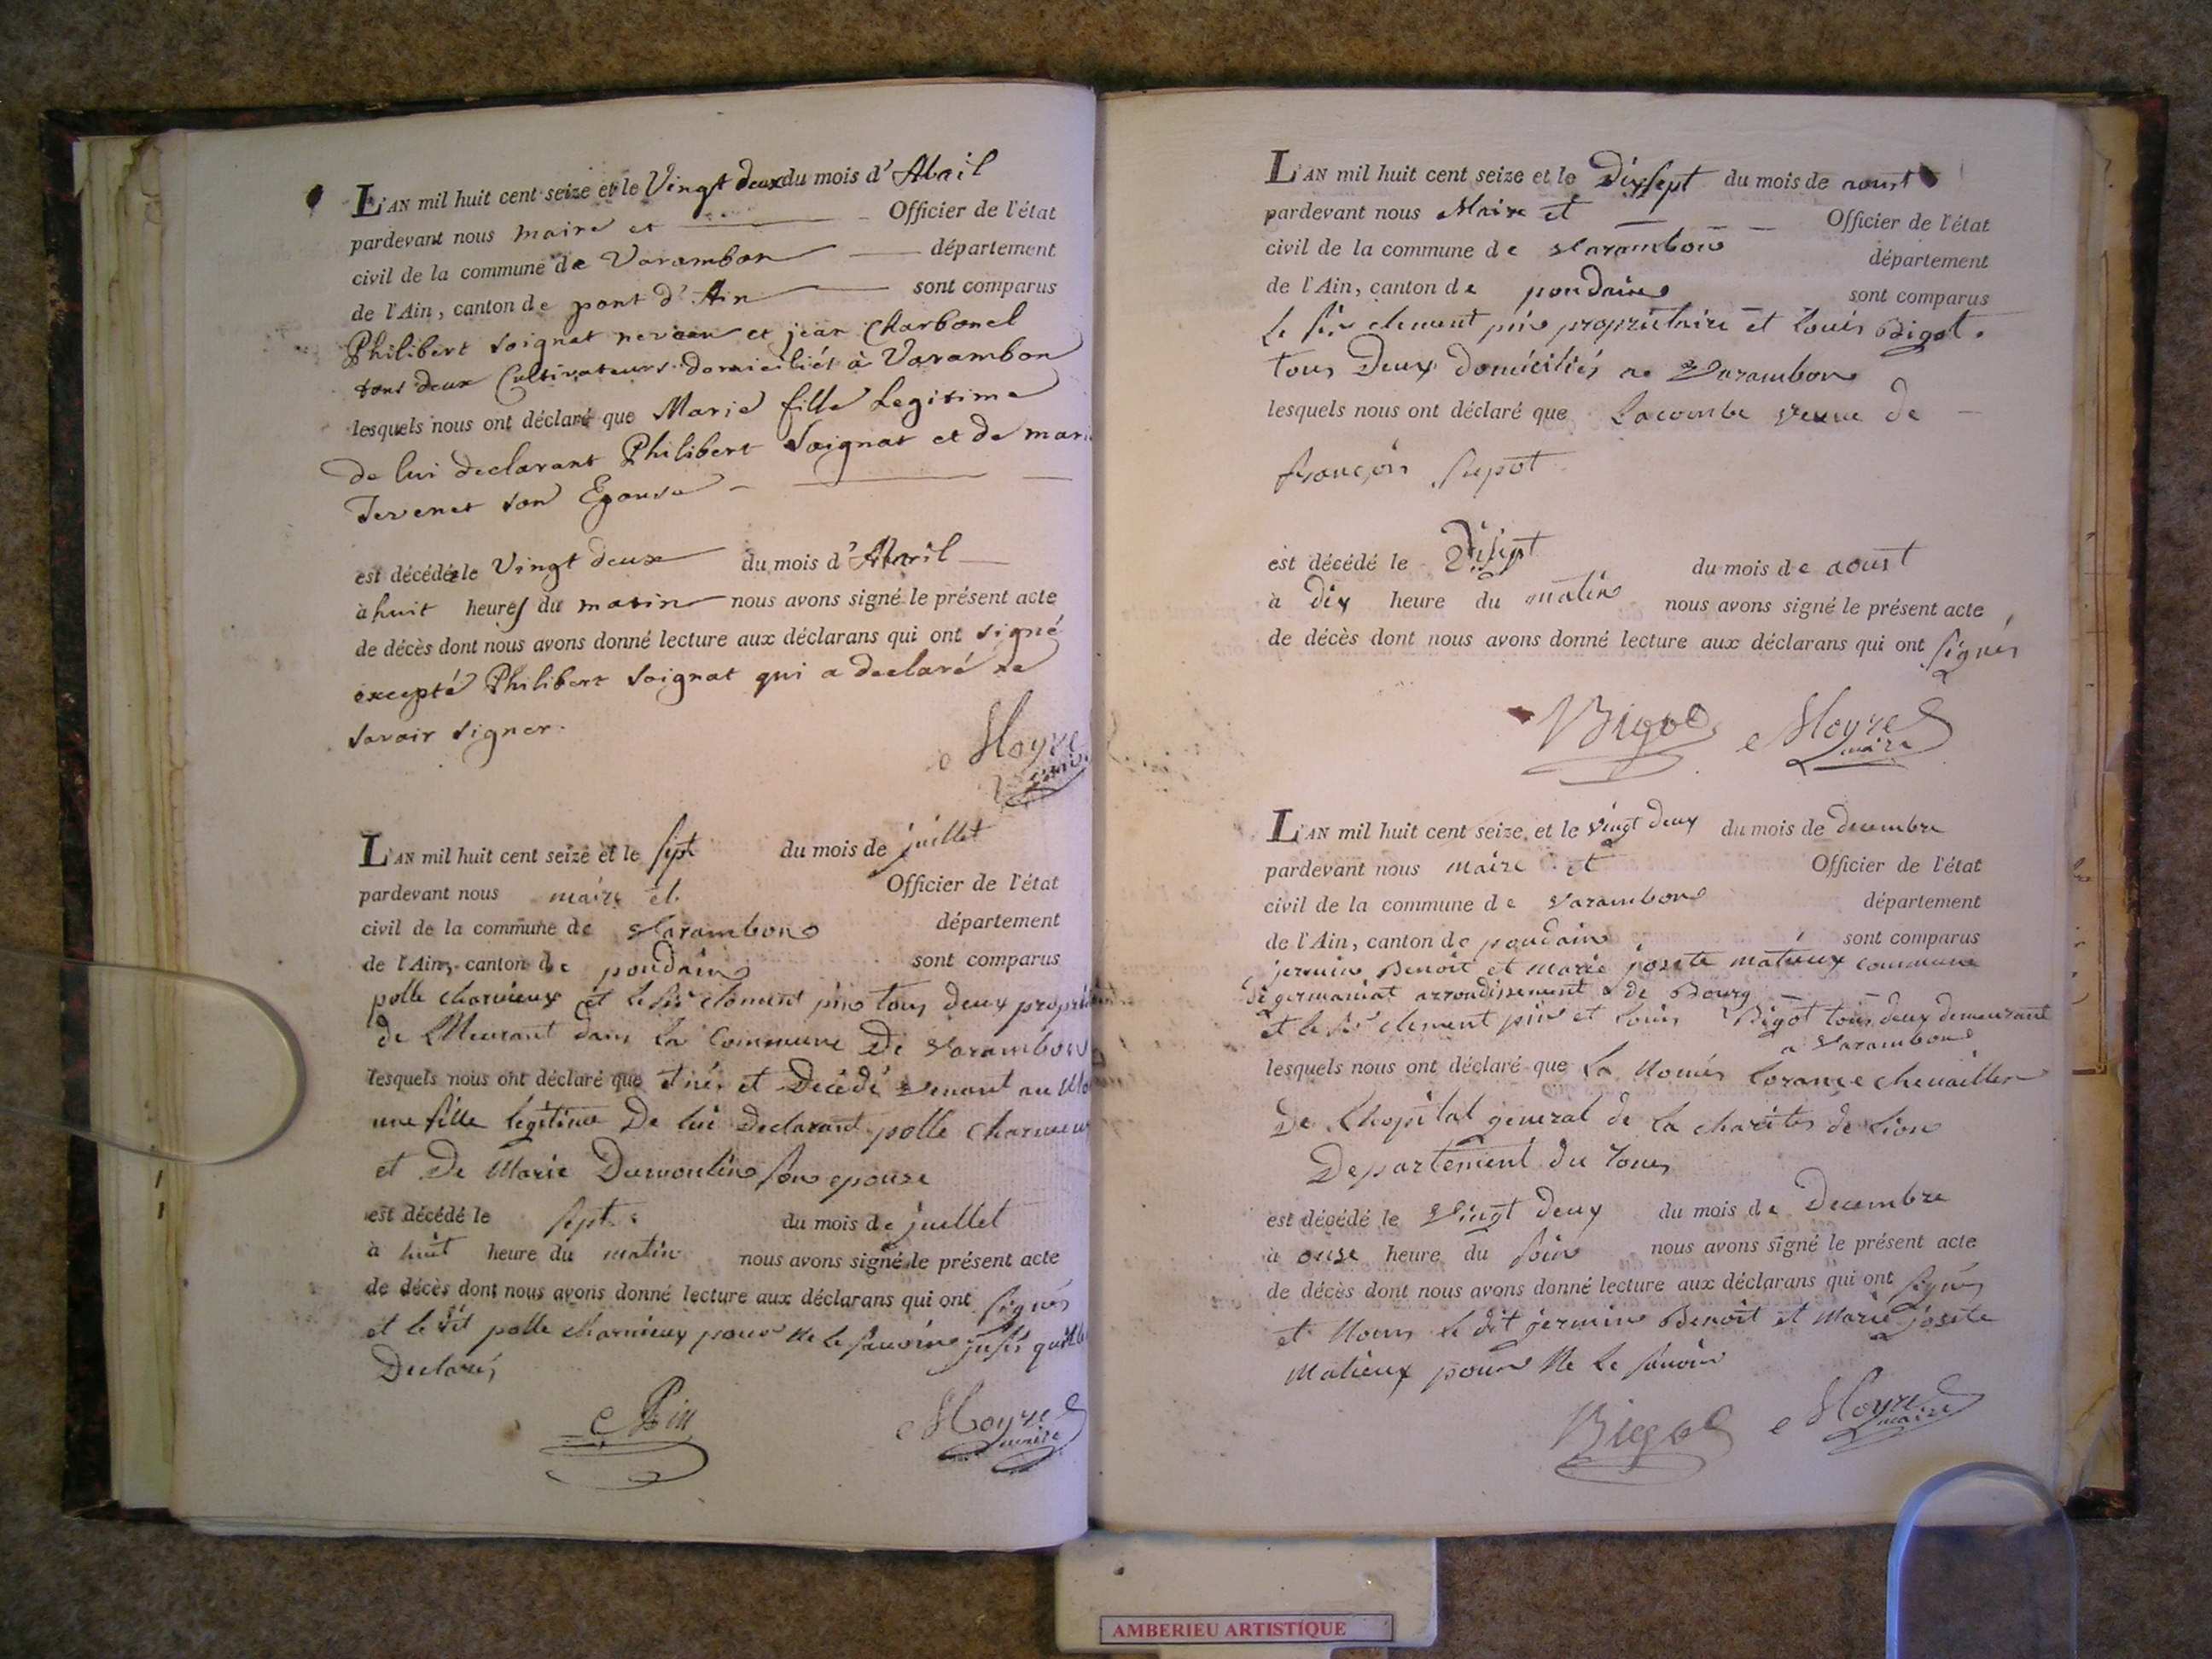 L'AN mil huit cent seize et le Vingt deux du mois d' Avril
pardevant nous maire et Officier de l'état
civil de la commune de Varambon département
de l'Ain, canton de pont d'Ain sont comparus
Philibert Soignat et jean Charbonel
tous deux Cultivateurs domiciliés à Varambon
lesquels nous ont déclaré que Marie fille Legitime
de lui declarant Philibert Soignat et de marie
Tevenet son Epouse
est décédée le Vingt deux du mois d' Avril
à huit heures du matin nous avons signé le présent acte
de décès dont nous avons donné lecture aux déclarans qui ont signé
excepté Philibert Soignat qui a declaré ne
savoir signer.
Moyre
maire
L'AN mil huit cent seize et le sept du mois de juillet
pardevant nous maire et Officier de l'état
civil de la commune de Varambon département
de l'Ain, canton de pondain sont comparus
polle charvieux et le sir clement pin tous deux propri
de Meurant dans la Commune De Varambon
lesquels nous ont déclaré que et Décédé venant au
une fille legitime De lui Declarant polle
et De Marie Dumoulin son epouse
est décédé le sept du mois de juillet
à huit heure du matin nous avons signé le présent acte
de décès dont nous avons donné lecture aux déclarans qui ont signés
et le dit polle charvieux pour ne le savoir
Declarés
Pin
Moyre
maire
L'AN mil huit cent seize et le Dixsept du mois de aoust
pardevant nous Maire et Officier de l'état
civil de la commune de Varambon département
de l'Ain, canton de pondain sont comparus
le sir clement pin propriétaire et louis Bigot.
tous Deux domiciliés a Varambon
lesquels nous ont déclaré que Lacombe veuve de
françois
est décédé le Disept du mois de aoust
à dix heure du matin nous avons signé le présent acte
de décès dont nous avons donné lecture aux déclarans qui ont signés
Bigot Moyre
maire
L'AN mil huit cent seize et le vingt deux du mois de decembre
pardevant nous maire et Officier de l'état
civil de la commune de Varambon département
de l'Ain, canton de pondain sont comparus
jermin Benoit et marie josete matieux commune
de germaniat arrondissement de Bourg
et le sir clement pin et louis Bigot tous deux demeurant
a Varambon
lesquels nous ont déclaré que la
De Lhopital general de la charités de lion
Departement du
est décédé le Vingt deux du mois de Decembre
à onse heure du soir nous avons signé le présent acte
de décès dont nous avons donné lecture aux déclarans qui ont signés
et Nom le dit jermin Benoit et Marie josete
Matieux pour Ne le savoir
Bigot Moyre
maire
AMBERIEU ARTISTIQUE